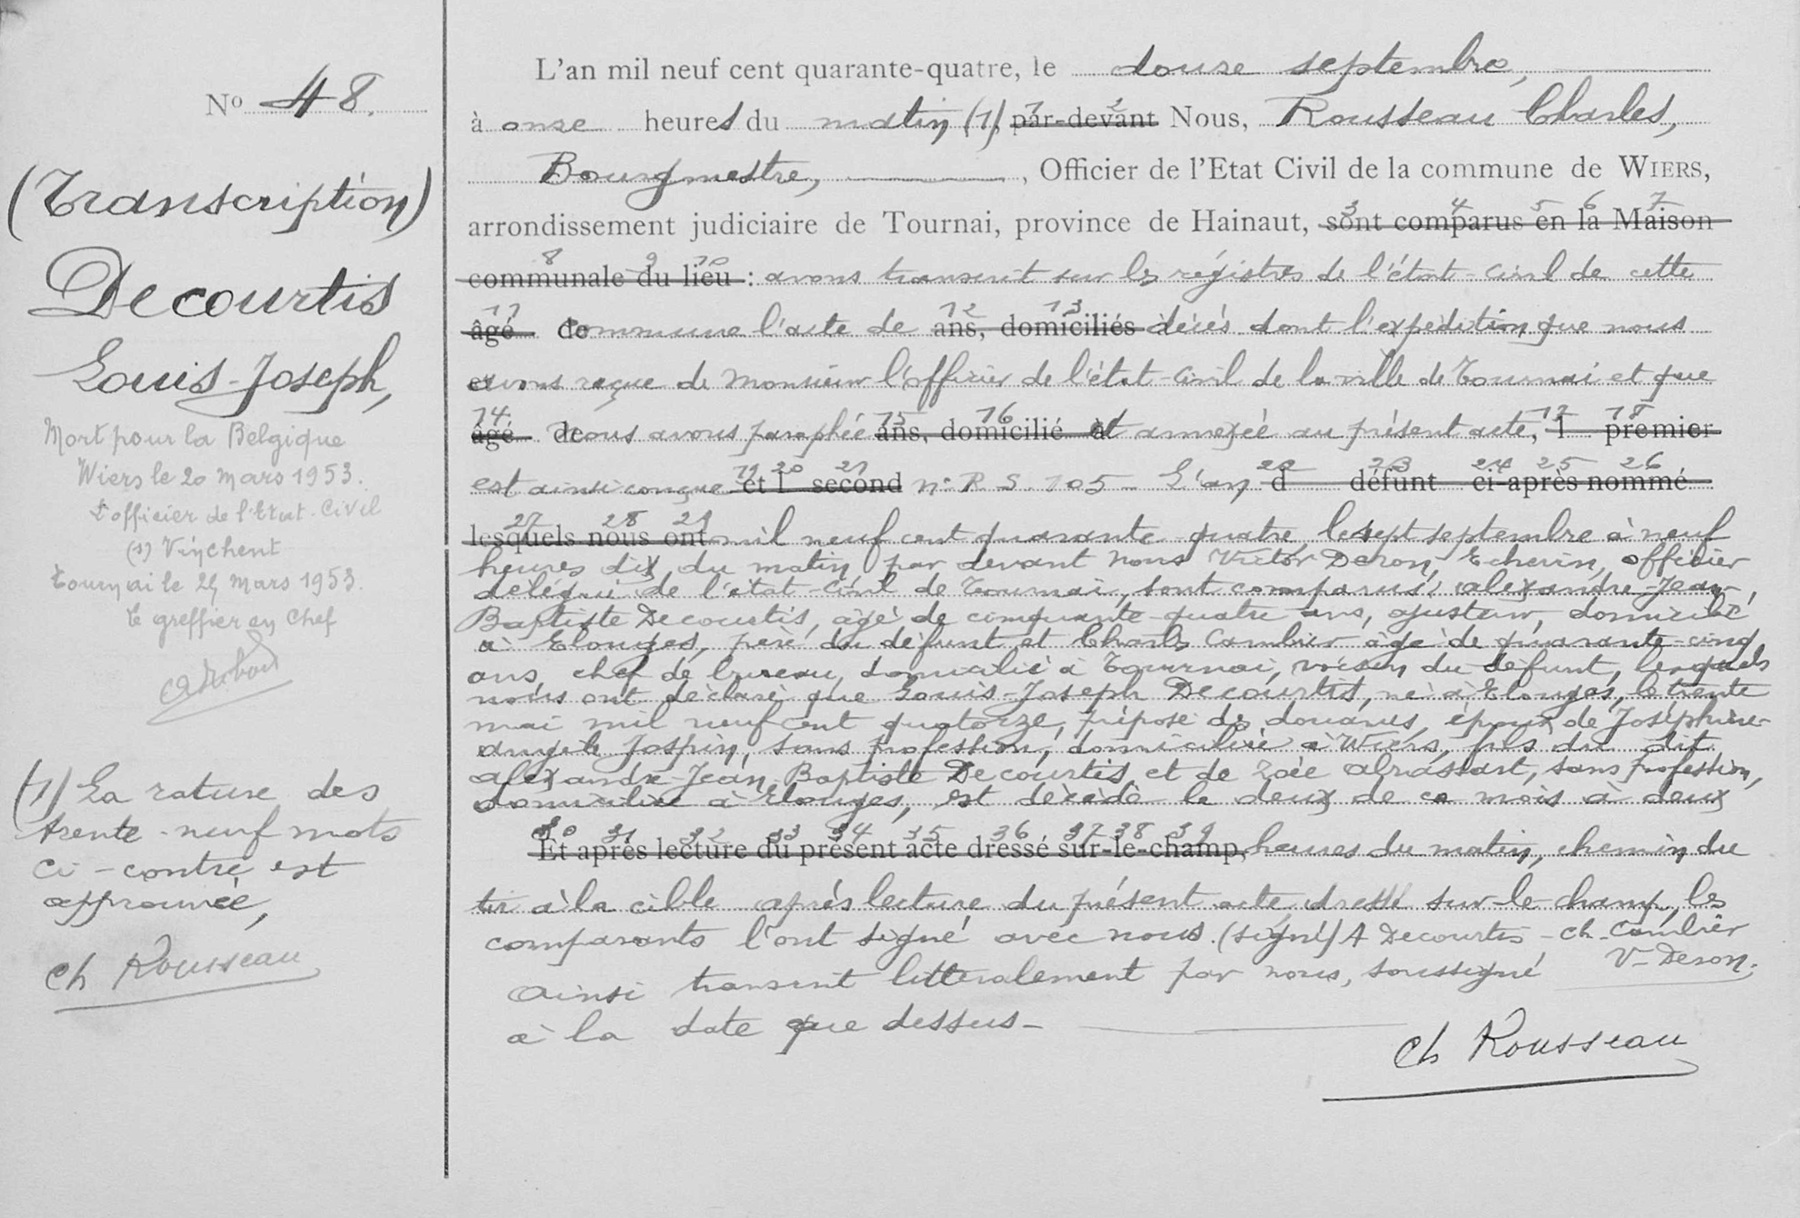 No 48.
(Transcription)
Decourtis
Louis-Joseph,
Mort pour la Belgique
Wiers le 20 mars 1953.
L'officier de l'Etat-Civil
(s) Vinchent
Tournai le 24 mars 1953.
Le greffier en Chef
(1) La rature des
trente-neuf mots
ci-contre est
approuvée,
Ch Rousseau
L'an mil neuf cent quarante-quatre, le douze septembre,
à onze heures du matin (1) par-devant Nous, Rousseau Charles,
Bourgmestre, , Officier de l'Etat Civil de la commune de WIERS,
arrondissement judiciaire de Tournai, province de Hainaut, sont comparus en la Maison
communale du lieu : avons transcrit sur les régistres de l'état-civil de cette
âgé de commune l'acte de ans, domiciliés décès dont l'expédition que nous
avons reçue de Monsieur l'officier de l'état-civil de la ville de Tournai et que
âgé de nous avons paraphée ans, domicilié à et annexée au présent acte, l premier
est ainsi conçue et l second n° R S 105 - L'an d défunt ci-après nommé
lesquels nous ont mil neuf cent quarante quatre, le sept septembre à neuf
heures dix du matin par devant nous Victor Deron, Echevin, officier
délégué de l'état-civil de Tournai, sont comparus: alexandre-Jean,
Baptiste Decourtis, âgé de cinquante-quatre ans, ajusteur, domicilié
à Elouges, père du défunt et Charles Cambier âgé de quarante-cinq
ans, chef de bureau, domicilié à Tournai, voisin du défunt, lesquels
nous ont déclaré que Louis-Joseph Decourtis, né à Elouges, le trente
mai mil neuf cent quatorze, préposé des douanes, époux de Joséphine-
angèle Jospin, sans profession, domiciliée à Wiers, fils du dit
alexandre-Jean-Baptiste Decourtis et de Zoée abrassart, sans profession,
domiciliée à Elouges, est décédé le deux de ce mois à deux
Et après lecture du présent acte dressé sur-le-champ, heures du matin, chemin du
tir à la cible après lecture du présent acte, dressé sur-le-champ, les
comparants l'ont signé avec nous. (signé) A Decourtis - Ch. Cambier
V-Deron.
Ainsi transcrit littéralement par nous, soussigné
à la date que dessus-
Ch Rousseau